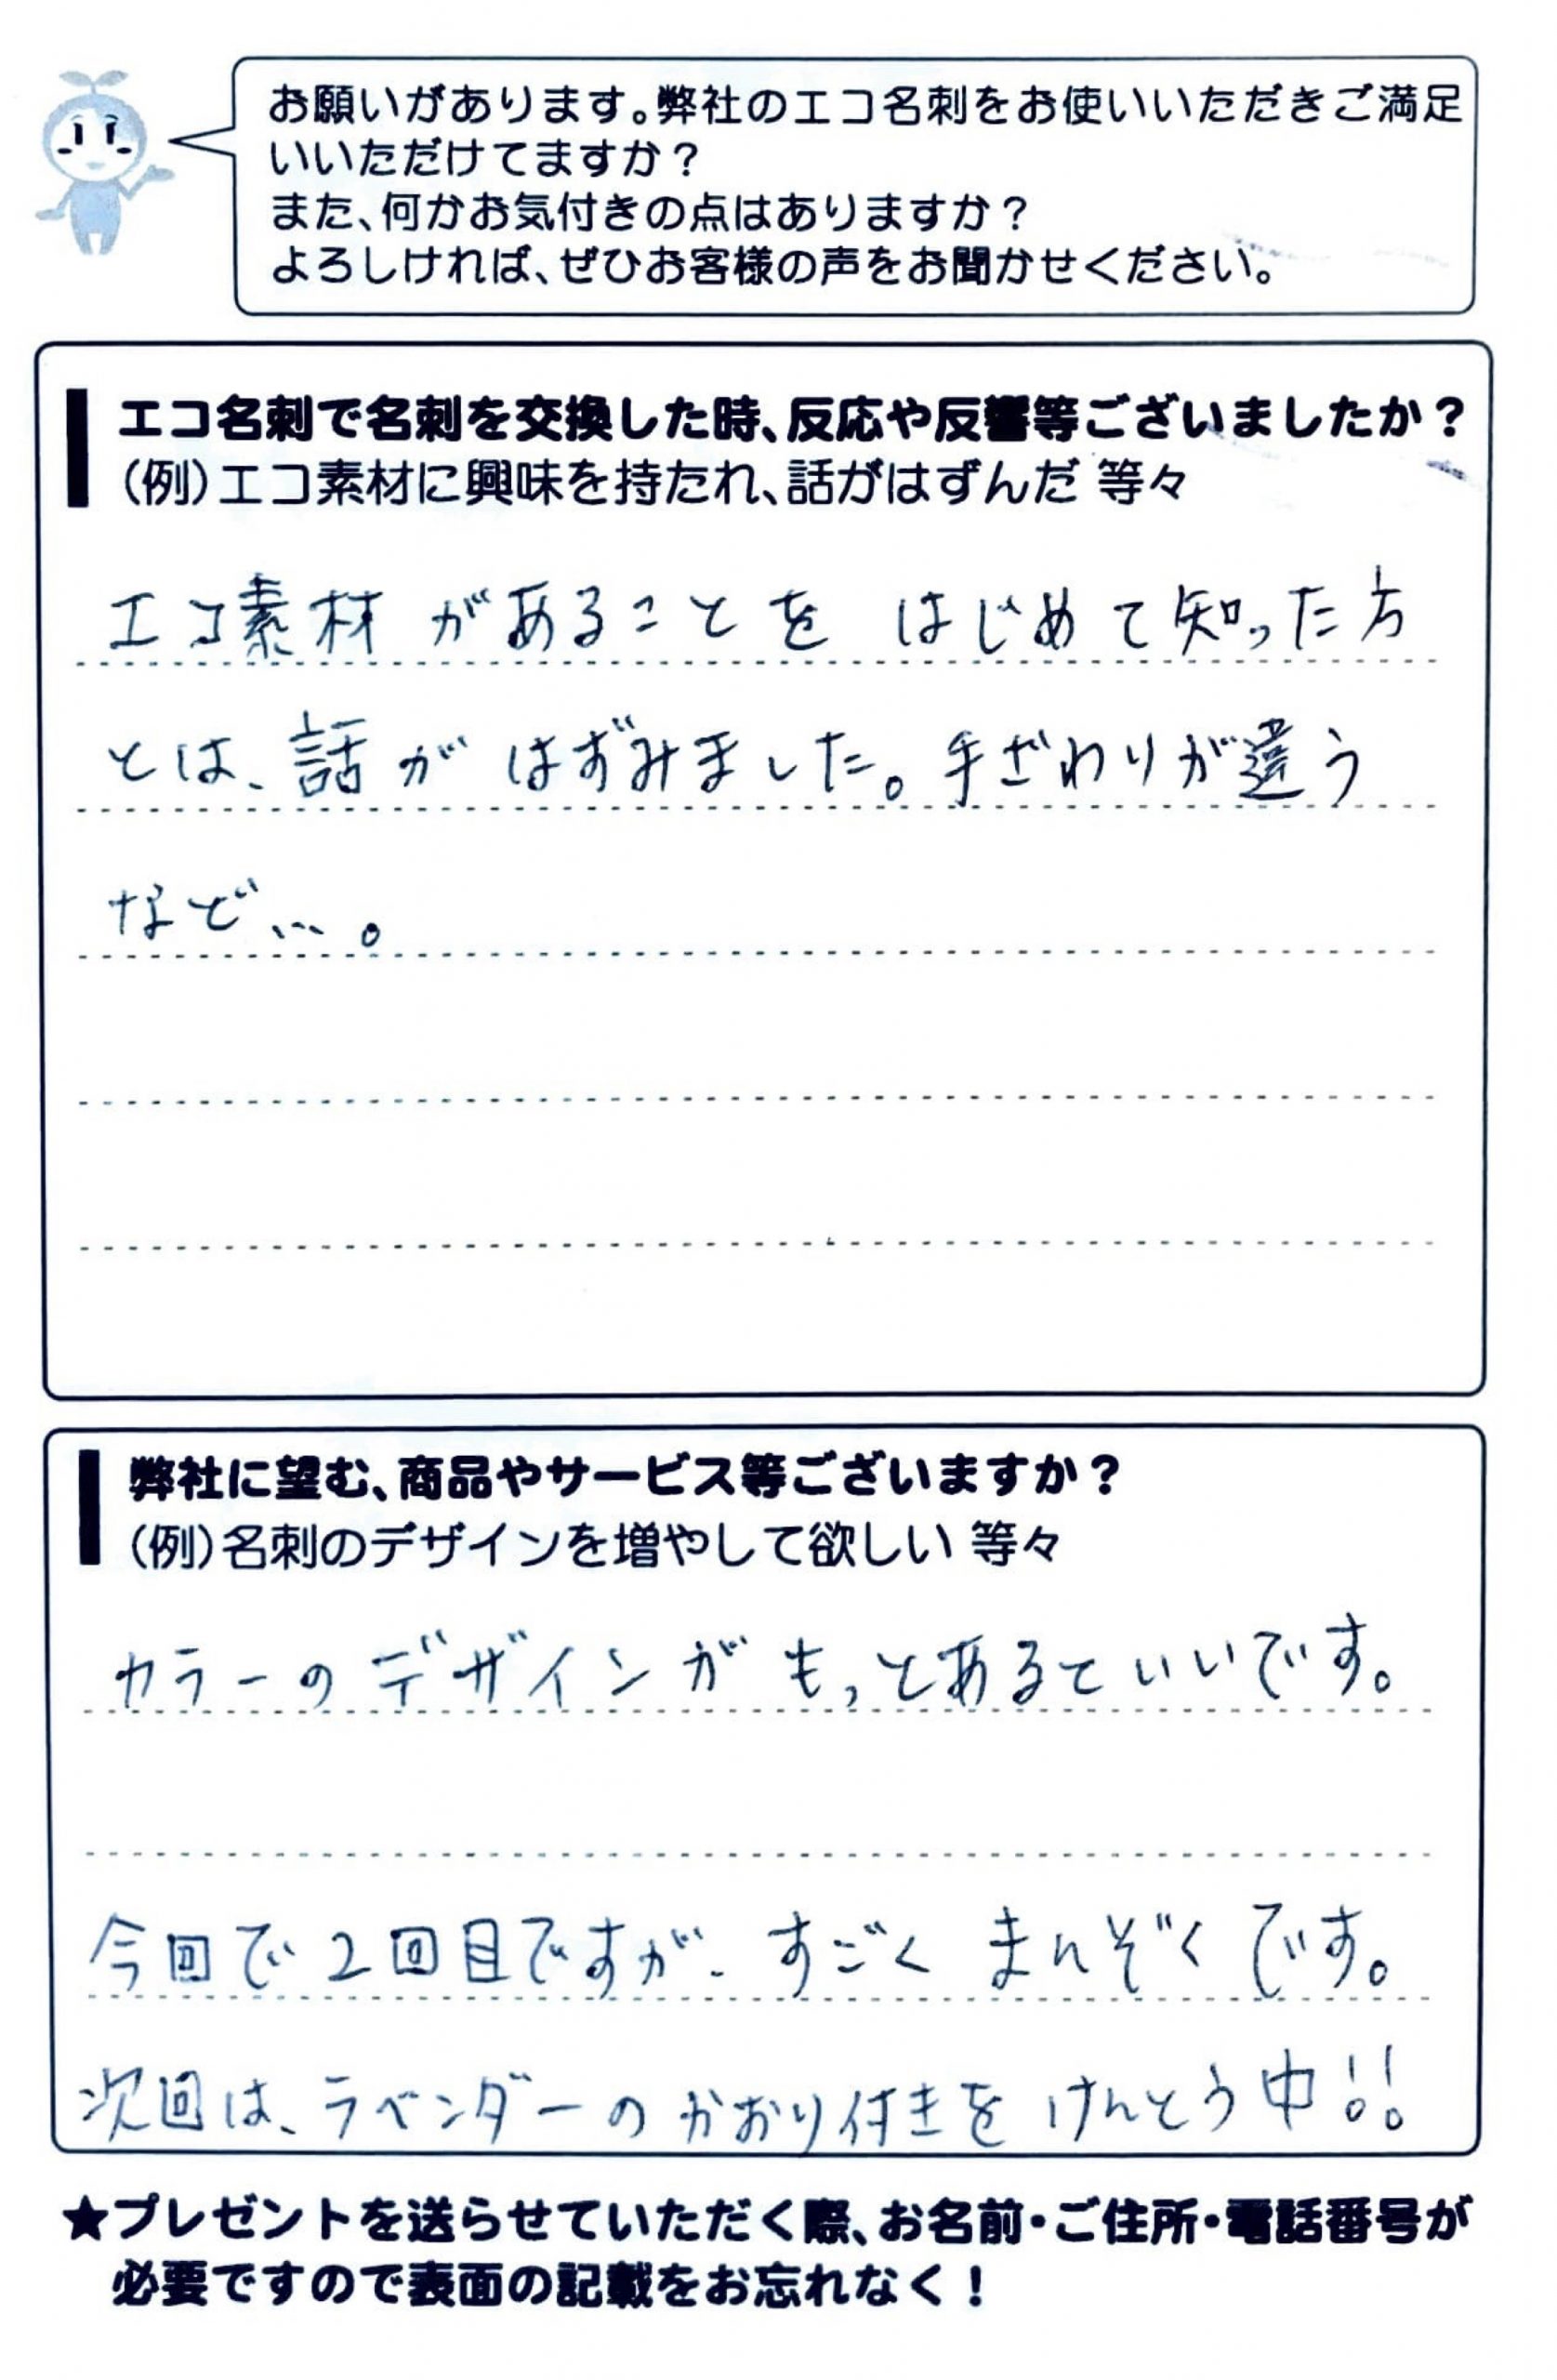 お願いがあります。弊社のエコ名刺をお使いいただきご満足
いいただけてますか?
また、何かお気付きの点はありますか?
よろしければ、ぜひお客様の声をお聞かせください。
エコ名刺で名刺を交換した時、反応や反響等ございましたか?
(例)エコ素材に興味を持たれ、話がはずんだ 等々
エコ素材があることを はじめて知った方
とは、話が はずみました。手ざわりが違う
など…。
弊社に望む、商品やサービス等ございますか?
(例)名刺のデザインを増やして欲しい 等々
カラーのデザインが もっとあるといいです。
今回で2回目ですが、すごく まんぞくです。
次回は、ラベンダーのかおり付きを けんとう中!!
★プレゼントを送らせていただく際、お名前・ご住所・電話番号が
必要ですので表面の記載をお忘れなく!